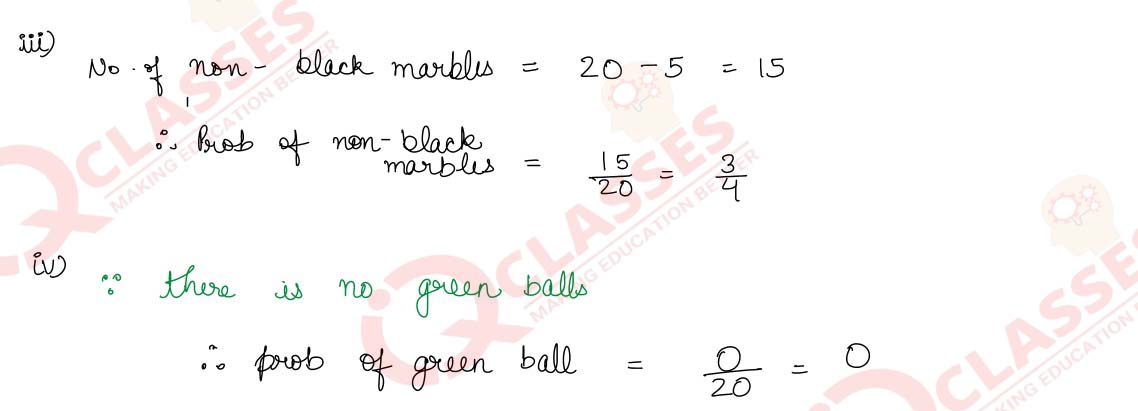 iii)
No. of non- black marbles = 20 - 5 = 15
∴ Prob of non-black
marbles = 15/20 = 3/4
iv) ∵ there is no green balls
∴ prob of green ball = 0/20 = 0
CLASSES
MAKING EDUCATION BETTER
CLASSES
MAKING EDUCATION BETTER
CLASSES
MAKING EDUCATION